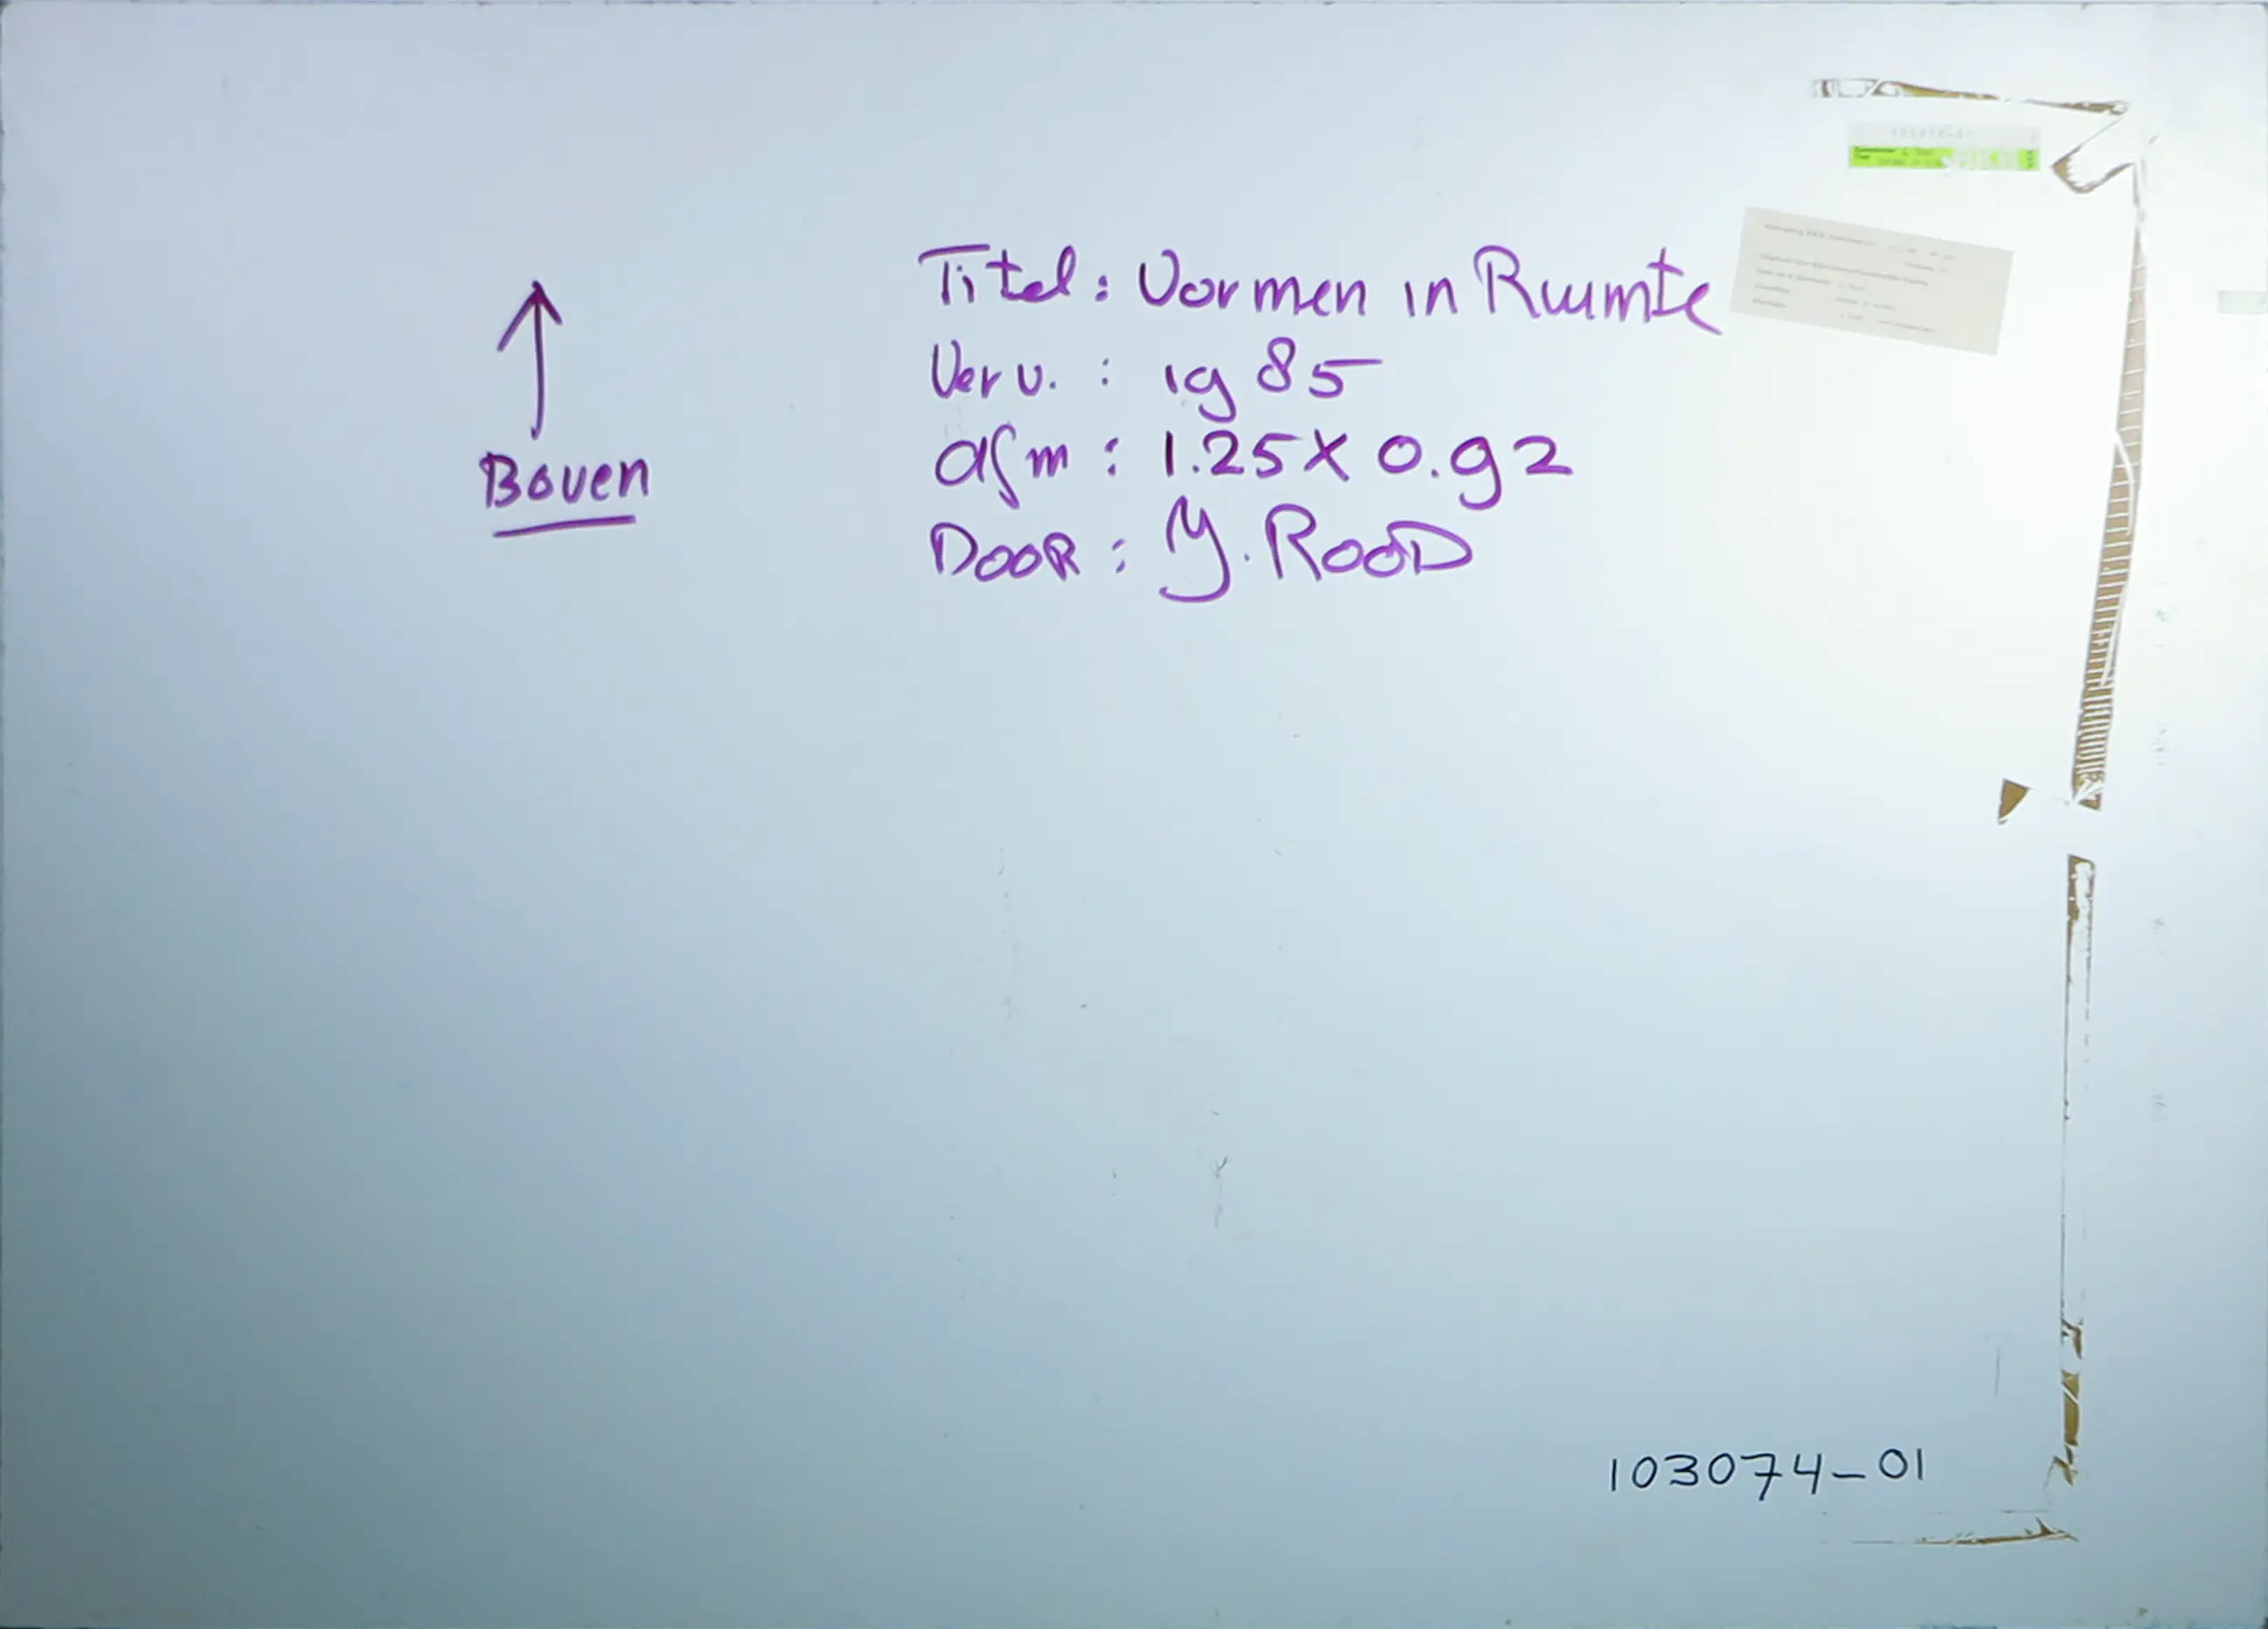 Titel: Vormen in Ruimte
Verv. : 1985
afm : 1.25 x 0.92
Boven
DooR : Y. RooD
103074-01